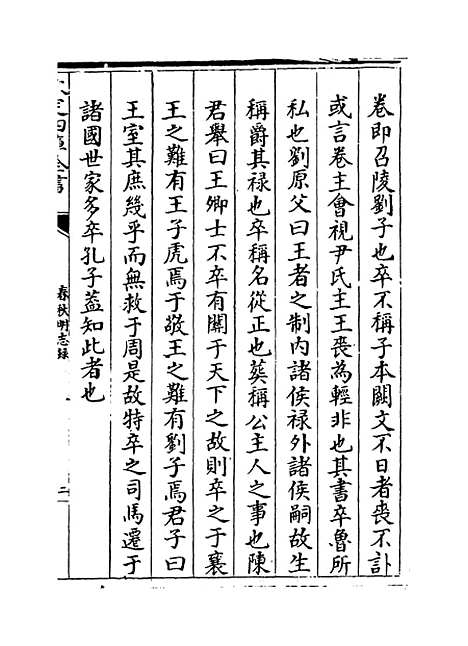 卷即召陵劉子也卒不稱子本闕文不日者喪不訃
或言卷主會視尹氏主王喪為輕非也其書卒魯所
私也劉原父曰王者之制内諸侯禄外諸侯嗣故生
稱爵其禄也卒稱名從正也葬稱公主人之事也陳
君舉曰王卿士不卒有關于天下之故則卒之于襄
王之難有王子虎焉于敬王之難有劉子焉君子曰
王室其庶幾乎而無救于周是故特卒之司馬遷于
諸國世家多卒孔子葢知此者也
春秋明志録